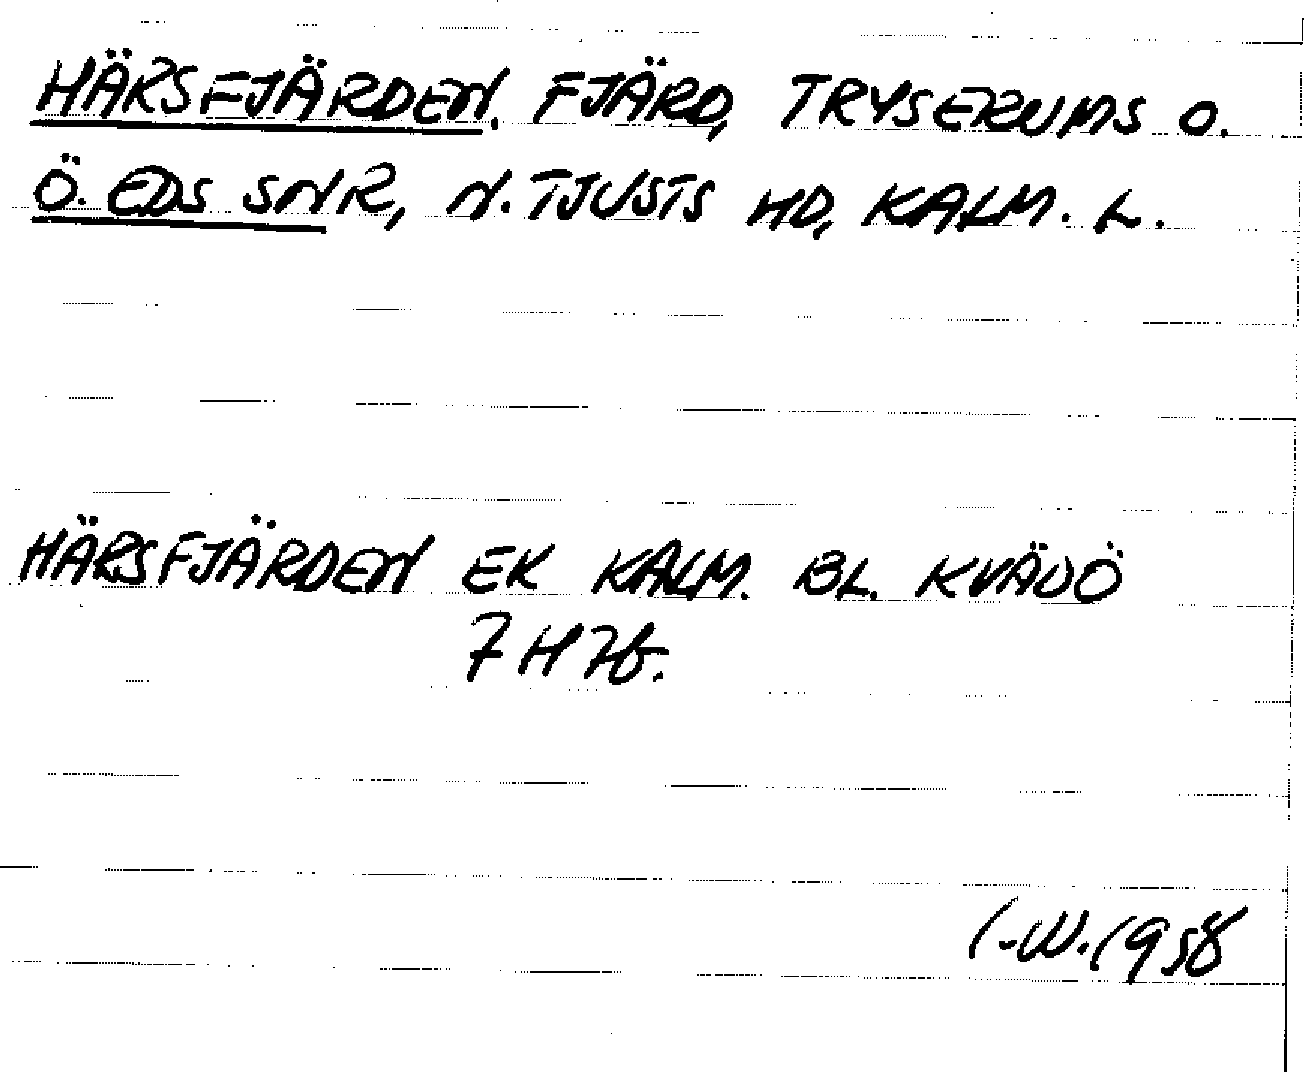 HÄRSFJÄRDEN. FJÄRD, TRYSERUMS O.
Ö. EDS SNR, N. TJUSTS HD, KALM. L.
HÄRSFJÄRDEN EK KALM. BL. KVÄDÖ
7 H 7b.
I.-W. 1958